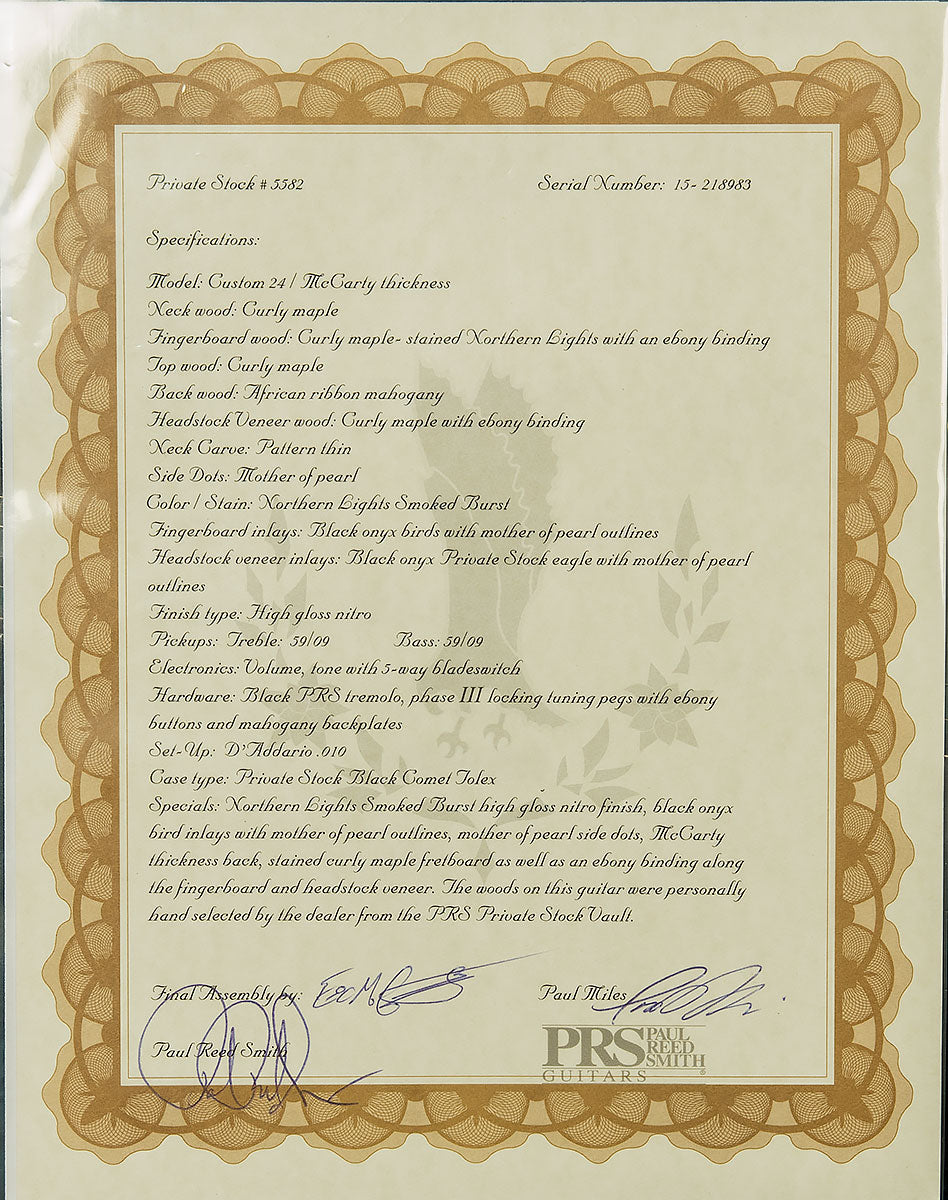 Private Stock # 5582 Serial Number: 15- 218983
Specifications:
Model: Custom 24 / McCarty thickness
Neck wood: Curly maple
Fingerboard wood: Curly maple- stained Northern Lights with an ebony binding
Top wood: Curly maple
Back wood: African ribbon mahogany
Headstock Veneer wood: Curly maple with ebony binding
Neck Carve: Pattern thin
Side Dots: Mother of pearl
Color / Stain: Northern Lights Smoked Burst
Fingerboard inlays: Black onyx birds with mother of pearl outlines
Headstock veneer inlays: Black onyx Private Stock eagle with mother of pearl
outlines
Finish type: High gloss nitro
Pickups: Treble: 59/09 Bass: 59/09
Electronics: Volume, tone with 5-way bladeswitch
Hardware: Black PRS tremolo, phase III locking tuning pegs with ebony
buttons and mahogany backplates
Set-Up: D'Addario .010
Case type: Private Stock Black Comet Tolex
Specials: Northern Lights Smoked Burst high gloss nitro finish, black onyx
bird inlays with mother of pearl outlines, mother of pearl side dots, McCarty
thickness back, stained curly maple fretboard as well as an ebony binding along
the fingerboard and headstock veneer. The woods on this guitar were personally
hand selected by the dealer from the PRS Private Stock Vault.
Final Assembly by: Paul Miles
Paul Reed Smith
PRS PAUL REED SMITH
GUITARS